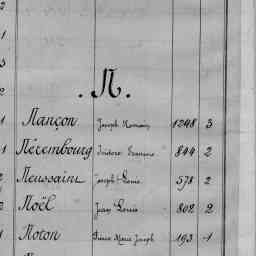 N.
1 Nançon Joseph Romain 1248 3
1 Nérembourg Isidore 844 2
2 Neussaint Joseph Louis 578 2
2 Noël Jean Louis 802 2
1 Noton Pierre Marie Joseph 193 1